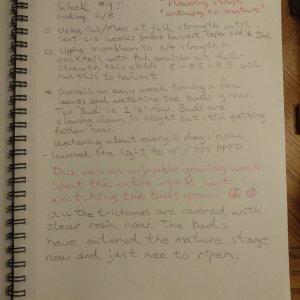 Week #9:
ending 2/8
"flowering stage
continuing to mature"
Using Cal/Mag at full strength until
last 2-3 weeks before harvest taper off
Upping morebloom to 3/4 strength in
cocktail with fish emulsion at full
strength this yields 5-8.5-8.5. will
run this to harvest.
* Overall an easy week triming a few
leaves and watching the buds grow.
Top Bud is 2 1/4" now. Buds are
slowing down in hieght but still getting
fatter now
Watering about every 3 days now
- lowered the light to 15" / 725 PPFD
This was an enjoyable growing week.
Spent the entire week just
watching the buds grow.
All the trichomes are covered with
clear resin now. The buds
have entered the mature stage
now and just nee to ripen.